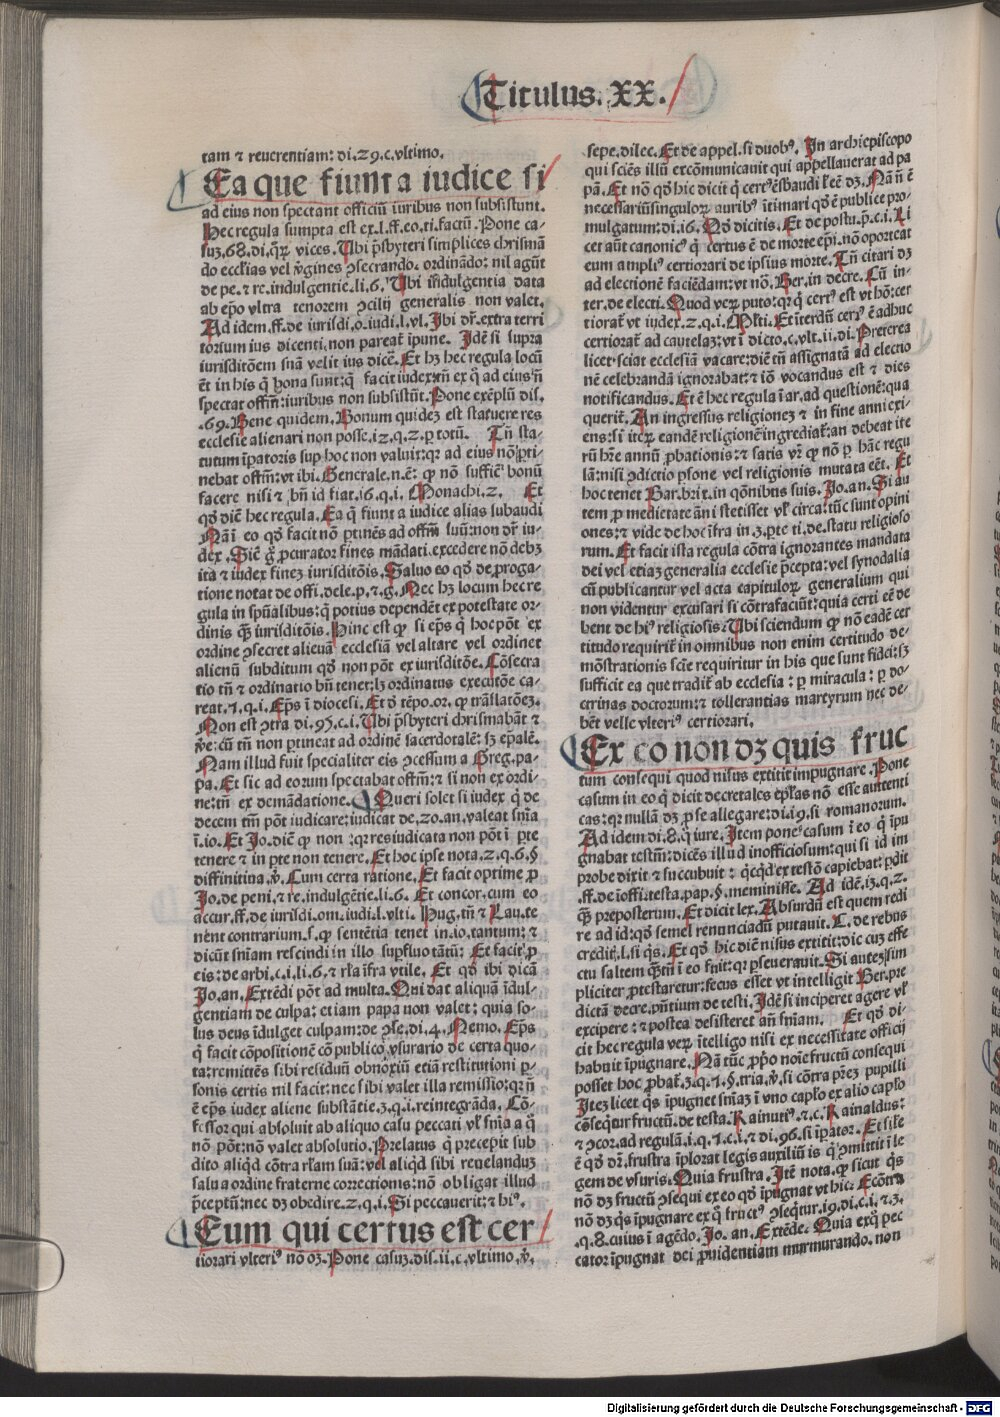 Titulus. XX.
tam ⁊ reuerentiam: di. 29. c. vltimo.
Ea que fiunt a iudice si
ad eius non spectant officiū iuribus non subsistunt.
Hec regula sumpta est ex. l. ff. eo. ti. factū. Pone ca-
suꝫ. 68. di. qr̄ vices. Ubi p̄sbyteri simplices chrismā
do eccl̓ias vel v̓gines ꝯsecrando. ordinādo: nil agūt
de pe. ⁊ re. indulgentie. li. 6. Ubi īndulgentia data
ab ep̄o vltra tenorem ꝯcilij generalis non valet.
Ad idem. ff. de iurisdi. o. iudi. l. vl. Ibi dr̄. extra terri
torium ius dicenti, non pareat̄ īpune. Idē si supra
iurisditōem suā velit ius dicē. Et hꝫ hec regula locū
ēt in his q̄ bona sunt: q̄ facit iudex: tn̄ ex q̄ ad eius n̄
spectat offm̄: iuribus non subsistūt. Pone exēplū dis.
.69. Bene quidem. Bonum quideꝫ est statuere res
ecclesie alienari non posse. 12. q. 2. ꝑ totū. Tn̄ sta-
tutum īpatoris sup hoc non valuit: qr ad eius nō ꝑti-
nebat offm̄: vt ibi. Generale. n. ē: ꝙ nō suffic̄ bonū
facere nisi ⁊ bn̄ id fiat. 16. q. i. Monachi. 2. Et
qđ dic̄ hec regula. Ea q̄ fiunt a iudice alias subaudi
Nā ī eo qđ facit nō ptinēs ad offm̄ suū: non dr̄ iu-
dex. Sic̄ g̊ ꝓcurator fines mādati. excedere nō debꝫ
ita ⁊ iudex fineꝫ iurisditōis. Saluo eo qđ de proga-
tione notat de offi. dele. p. ⁊. g. Nec hꝫ locum hec re
gula in spūalibus: q̄ potius dependēt ex potestate or-
dinis q̄ꝫ iurisditōis. Hinc est ꝙ si ep̄s q̄ hoc pōt ex
ordine ꝯsecret alicuā ecclesiā vel altare vel ordinet
alienū subditum qđ non pōt ex iurisditōe. Cōsecra
tio tn̄ ⁊ ordinatio bn̄ tenet: lꝫ ordinatus executōe ca-
reat. 1. q. i. Ep̄s ī diocesi. Et đ tēpo. or. ꝙ trāslatōeꝫ.
Non est ꝯtra di. 95. c. i. Ubi p̄sbyteri chrismabāt ⁊
v̄e: cū tn̄ non ꝑtineat ad ordinē sacerdotalē: sꝫ ep̄alē.
Nam illud fuit specialiter eis ꝯcessum a Greg. pa-
pa. Et sic ad eorum spectabat offm̄: ⁊ si non ex ordi-
ne: tn̄ ex demādatione. Queri solet si iudex q̄ de
decem tm̄ pōt iudicare: iudicat de. 20. an. valeat sn̄ia
ī. io. Et Jo. dic̄ ꝙ non: qr res iudicata non pōt ī ꝑte
tenere ⁊ in ꝑte non tenere. Et hoc ipse nota. 2. q. 6. §
diffinitiua. v̓. Cum certa ratione. Et facit optime ꝓ
Jo. de peni. ⁊ re. indulgētie. li. 6. Et concor. cum eo
accur. ff. de iurisdi. om. iudi. l. vlti. Hug. tn̄ ⁊ Lau. te
nent contrarium. s. ꝙ sentētia tenet in. io. tantum: ⁊
dicūt sniam rescindi in illo supfluo tātū: Et facit ꝓ
eis: de arbi. c. i. li. 6. ⁊ rl̓a īfra vtile. Et qđ ibi dicā
Jo. an. Extēdi pōt ad multa. Qui dat aliquā īdul-
gentiam de culpa: etiam papa non valet: quia so-
lus deus īdulget culpam: de ꝯse. di. 4. Nemo. Ep̄s
q̄ facit cōpositionē cō publico vsurario de certa quo-
ta: remittēs sibi residuū obnoxiū etiā restitutioni ꝑ-
sonis certis nil facit: nec sibi valet illa remissio: qr n̄
ē ep̄s iudex aliene substātie. 3. q. i. reintegrāda. Cō-
fessor qui absoluit ab aliquo casu peccati vl̓ sn̄ia a q̄
nō pōt: nō valet absolutio. Prelatus q̄ precepit sub
dito aliqđ cōtra rl̓am suā: vel aliqđ sibi reuelanduꝫ
salua ordine fraterne correctionis: nō obligat illud
p̄ceptū: nec dꝫ obedire. 2. q. i. Si peccauerit: ⁊ hiꝰ.
Eum qui certus est cer
tiorari vlteriꝰ nō oꝫ. Pone casuꝫ. dis. ii. c. vltimo. v̓.
sepe. dilec. Et de appel. si duobꝰ. In archiepiscopo
qui sciēs illū excōmunicauit qui appellauerat ad pa
pā. Et nō qđ hic dicit q̄ certꝰ ē subaudi l̓ eē dꝫ. Nā n̄ ē
necessariū singuloꝝ auribꝰ ītimari qđ ē publice pro-
mulgatum: di. 16. Qđ dicitis. Et de postu. p̄. c. i. Li
cet aūt canonicꝰ q̄ certus ē de morte ep̄i. nō oporteat
eum ampliꝰ certiorari de ipsius morte. Tn̄ citari dꝫ
ad electionē faciēdam: vt nō. Ber. in decre. Cū in-
ter. de electi. Quod veꝝ puto: qr q̄ certꝰ est vt hō: cer
tiorat̄ vt iudex. 2. q. i. Ml̓ti. Et īterdū certꝰ ē adhuc
certiorat̄ ad cautelaꝫ: vt ī dicto. c. vlt. ii. di. Pretcrea
licet sciat ecclesiā vacare: diē tn̄ assignatā ad electio
nē celebrandā ignorabat: ⁊ iō vocandus est ⁊ dies
notificandus. Et ē hec regula ī ar. ad questionē: qua
querit̄. An ingressus religioneꝫ ⁊ in fine anni exi-
ens: si iteꝝ eandē religionē ingrediat̄: an debeat ite
rū hr̄e annū ꝓbationis: ⁊ satis vr̄ ꝙ nō ꝑ hāc regu
lā: nisi ꝯditio ꝑsone vel religionis mutata eēt. Et
hoc tenet Bar. bri t. in qōnibus suis. Jo. an. Si au
tem ꝓ medietate āni stetisset vl̓ circa: tūc sunt opini
ones: ⁊ vide de hoc īfra in. 3. ꝑte ti. de. statu religioso
rum. Et facit ista regula cōtra ignorantes mandata
dei vel etiaꝫ generalia ecclesie p̄cepta: vel synodalia
cū publicantur vel acta capituloꝝ generalium qui
non videntur excusari si cōtrafaciūt: quia certi eē de
bent de hiꝰ religiosis. Ubi sciendum ꝙ nō eadē cer
titudo requirit̄ in omnibus non enim certitudo de-
mōstrationis scīe requiritur in his que sunt fidei: sꝫ
sufficit ea que tradit̄ ab ecclesia: ꝑ miracula: ꝑ do-
ctrinas doctorum: ⁊ tollerantias martyrum nec de-
bēt velle vlteriꝰ certiorari.
Ex eo non dꝫ quis fruc
tum consequi quod nisus extitit impugnare. Pone
casum in eo q̄ dicit decretales ep̄las nō esse autenti
cas: qr nullā dꝫ ꝓ se allegare: di. 19. si romanorum.
Ad idem di. 8. q̄ iure. Item pone casum ī eo q̄ īpu
gnabat testm̄: dicēs illud inofficiosum: qui si id im
probe dixit ⁊ succubuit: q̄cqđ ex testō capiebat: ꝑdit
.ff. de īoffi. testa. pap. §. meminisse. Ad idē. 13. q. 2.
q̄ꝫ preposterum. Et dicit lex. Absurdū est quem redi
re ad id: qđ semel renunciadū putauit. C. de rebus
credit̄. l. si q̄s. Et qđ hic dic̄ nisus extitit: dic cuꝫ effe
ctu saltem q̄ꝫtū ī eo fuit: qr ꝑseuerauit. Si auteꝫ sim
pliciter ꝓtestaretur: secus esset vt intelligit Ber. pre
dictā decre. pn̄tium de testi. Idē si inciperet agere vl̓
excipere: ⁊ postea desisteret an̄ sniam. Et qđ di-
cit hec regula veꝝ ītelligo nisi ex necessitate officij
habuit īpugnare. Nā tūc ꝓpō noīe fructū consequi
posset hoc ꝓbat̄. 3. q. 7. §. tria. v̓. si cōtra pr̄eꝫ pupilli
Iteꝫ licet q̄s īpugnet sn̄iaꝫ ī vno capl̓o ex alio capl̓o
cōseq̄tur fructū. de testa. Rainutiꝰ. ⁊. c. Rainaldus:
⁊ ꝯcor. ad regulā. i. q. 1. c. i. ⁊ di. 96. si īpator. Et sile
ē qđ dr̄. frustra īplorat legis auxiliū is q̄ ꝯmittit ī le
gem de vsuris. Quia frustra. Itē nota. ꝙ sicut q̄s
nō dꝫ fructū ꝯsequi ex eo qđ īpugnat vt hic: Ecōtra
nō dꝫ q̄s īpugnare ex q̄ fructꝰ ꝯseq̄tur. 19. di. c. i. ⁊. 3.
.q. 8. cuius ī agēdo. Jo. an. Extēde. Quia ex q̄ pec
cator īpugnat dei ꝓuidentiam murmurando. non
Digitalisierung gefördert durch die Deutsche Forschungsgemeinschaft - DFG